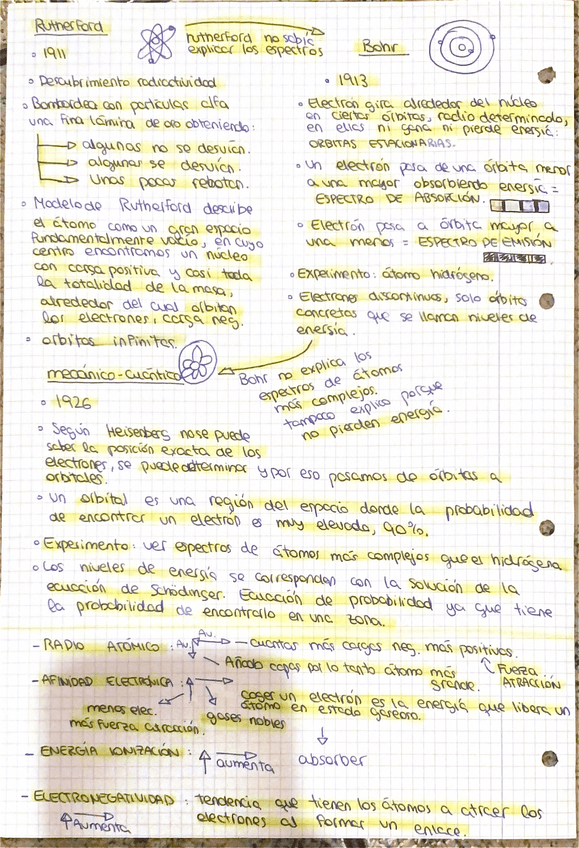 Rutherford
• 1911
• Descubrimiento radioactividad
• Bombardea con partículas alfa
una fina lámina de oro obteniendo:
algunas no se desvían.
algunas se desvían.
Unas pocas rebotan.
• Modelo de Rutherford describe
el átomo como un gran espacio
fundamentalmente vacío, en cuyo
centro encontramos un núcleo
con carga positiva y casi toda
la totalidad de la masa,
alrededor del cual orbitan
los electrones, carga neg.
• orbitas infinitas.
rutherford no sabía
explicar los espectros
Bohr
• 1913
• Electrón gira alrededor del núcleo
en ciertas órbitas, radio determinado,
en ellas ni gana ni pierde energía:
ORBITAS ESTACIONARIAS.
• Un electrón pasa de una órbita menor
a una mayor absorbiendo energía =
ESPECTRO DE ABSORCIÓN.
• Electrón pasa a órbita mayor a
una menos = ESPECTRO DE EMISIÓN
• Experimento: átomo hidrógeno.
• Electrones discontinuos, solo órbita
concretas que se llaman niveles de
energía.
Bohr no explica los
espectros de átomos
más complejos.
tampoco explica porque
no pierden energía.
mecánico-cuántico
• 1926
• Según Heisenberg no se puede
saber la posición exacta de los
electrones, se puede determinar y por eso pasamos de órbitas a
orbitales.
• Un orbital es una región del espacio donde la probabilidad
de encontrar un electrón es muy elevada, 90%.
• Experimento: ver espectros de átomos más complejos que el hidrógeno
• Los niveles de energía se corresponden con la solución de la
ecuación de Schödinger. Ecuación de probabilidad ya que tiene
la probabilidad de encontrarlo en una zona.
- RADIO ATÓMICO: Au. Au. — cuantas más cargas neg. más positivas.
Añado capas por lo tanto átomo más
grande.
Fuerza
ATRACCIÓN
- AFINIDAD ELECTRÓNICA:
menos elec.
más fuerza atracción.
gases nobles
coger un electrón es la energía que libera un
átomo en estado gaseoso.
absorber
- ENERGÍA IONIZACIÓN: aumenta
- ELECTRONEGATIVIDAD: tendencia que tienen los átomos a atraer los
electrones al formar un enlace.
Aumenta